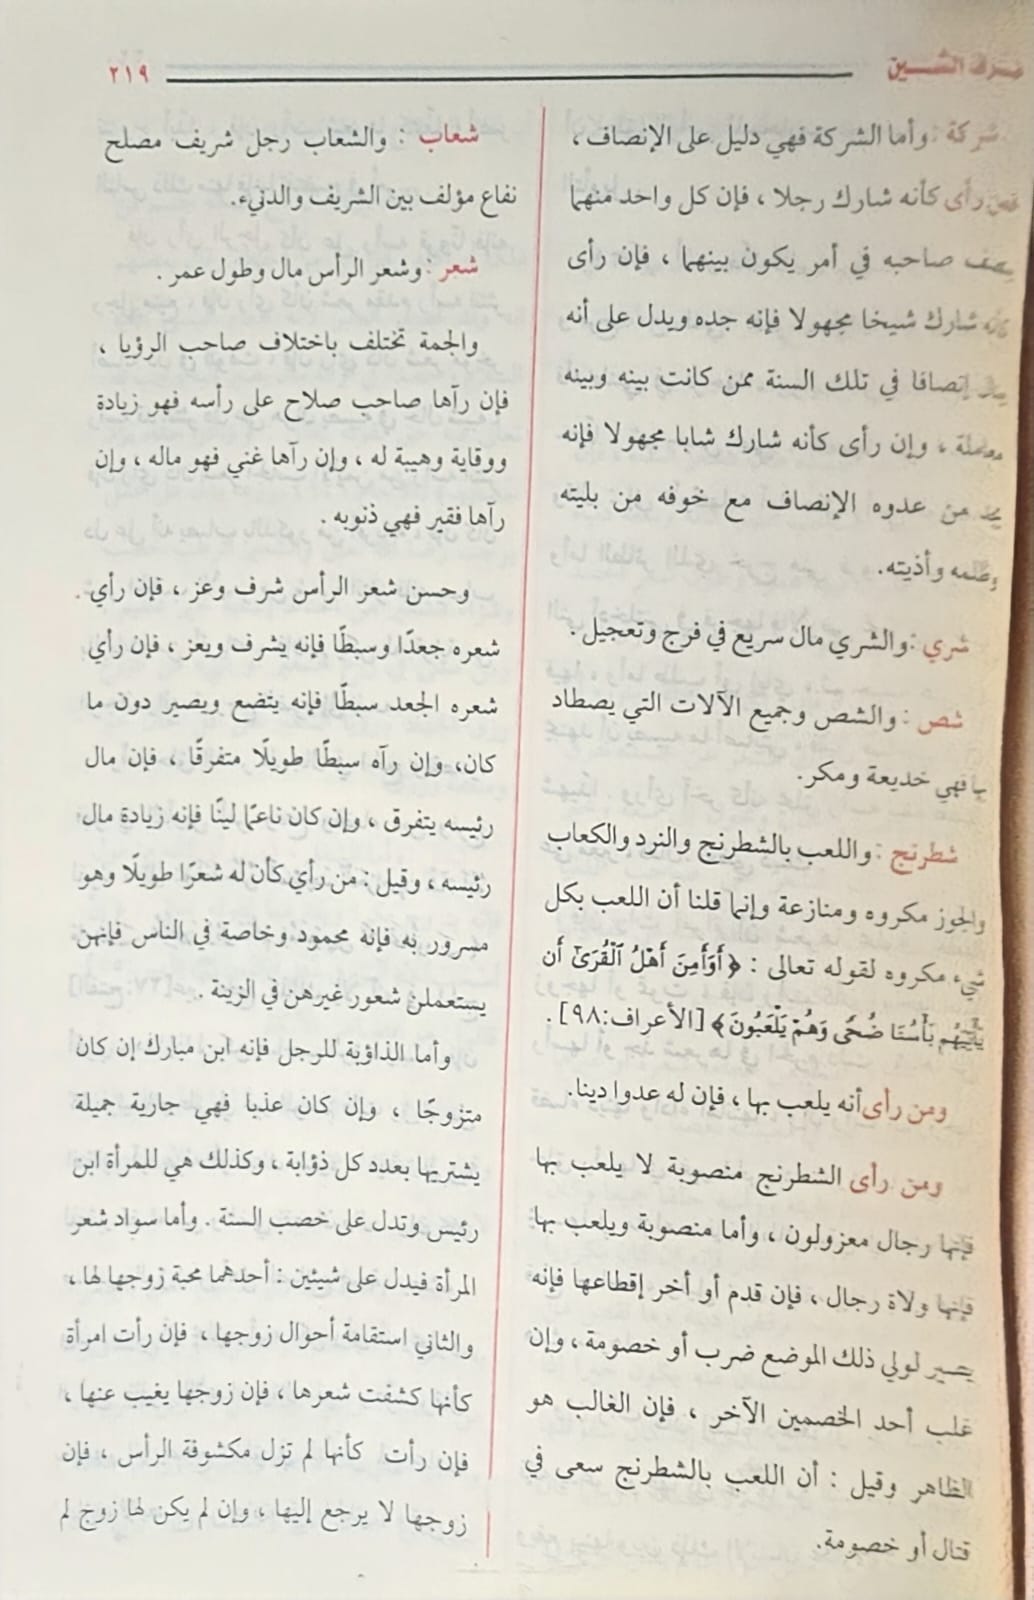 حرف الشين
٢١٩
شركة : وأما الشركة فهي دليل على الإنصاف ،
فمن رأى كأنه شارك رجلا ، فإن كل واحد منهما
صاحبه في أمر يكون بينهما ، فإن رأى
كأنه شارك شيخا مجهولا فإنه جده ويدل على أنه
إنصافا في تلك السنة ممن كانت بينه وبينه
معاملة ، وإن رأى كأنه شارك شابا مجهولا فإنه
من عدوه الإنصاف مع خوفه من بليته
وظلمه وأذيته.
شري : والشري مال سريع في فرج وتعجيل .
شص : والشص وجميع الآلات التي يصطاد
بها فهي خديعة ومكر.
شطرنج : واللعب بالشطرنج والنرد والكعاب
والجوز مكروه ومنازعة وإنما قلنا أن اللعب بكل
شيء مكروه لقوله تعالى : ﴿ أَوَأَمِنَ أَهْلُ ٱلْقُرَىٰٓ أَن
يَأْتِيَهُم بَأْسُنَا ضُحًى وَهُمْ يَلْعَبُونَ﴾ [الأعراف:٩٨] .
ومن رأى أنه يلعب بها ، فإن له عدوا دينا.
ومن رأى الشطرنج منصوبة لا يلعب بها
فإنها رجال معزولون ، وأما منصوبة ويلعب بها
فإنها ولاة رجال ، فإن قدم أو أخر إقطاعها فإنه
يصير لولي ذلك الموضع ضرب أو خصومة ، وإن
غلب أحد الخصمين الآخر ، فإن الغالب هو
الظاهر وقيل : أن اللعب بالشطرنج سعى في
قتال أو خصومة.
شعاب : والشعاب رجل شريف مصلح
نفاع مؤلف بين الشريف والدنيء.
شعر : وشعر الرأس مال وطول عمر .
والجمة تختلف باختلاف صاحب الرؤيا ،
فإن رآها صاحب صلاح على رأسه فهو زيادة
ووقاية وهيبة له ، وإن رآها غني فهو ماله ، وإن
رآها فقير فهي ذنوبه .
وحسن شعر الرأس شرف وعز ، فإن رأي
شعره جعدًا وسبطًا فإنه يشرف ويعز ، فإن رأي
شعره الجعد سبطًا فإنه يتضع ويصير دون ما
كان، وإن رآه سبطًا طويلًا متفرقًا ، فإن مال
رئيسه يتفرق ، وإن كان ناعمًا لينًا فإنه زيادة مال
رئيسه ، وقيل : من رأي كأن له شعرًا طويلًا وهو
مسرور به فإنه محمود وخاصة في الناس فإنهن
يستعملن شعور غيرهن في الزينة .
وأما الذاؤبة للرجل فإنه ابن مبارك إن كان
متزوجًا ، وإن كان عذبا فهي جارية جميلة
يشتريها بعدد كل ذؤابة ، وكذلك هي للمرأة ابن
رئيس وتدل على خصب السنة . وأما سواد شعر
المرأة فيدل على شيئين : أحدهما محبة زوجها لها ،
والثاني استقامة أحوال زوجها ، فإن رأت امرأة
كأنها كشفت شعرها ، فإن زوجها يغيب عنها ،
فإن رأت كأنها لم تزل مكشوفة الرأس ، فإن
زوجها لا يرجع إليها ، وإن لم يكن لها زوج لم